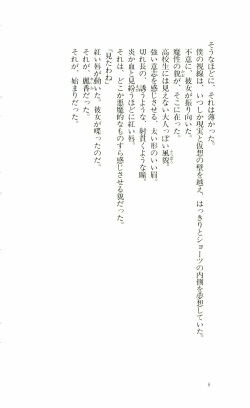 そうなほどに、それは薄かった。
僕の視線は、いつしか現実と仮想の壁を越え、はっきりとショーツの内側を夢想していた。
不意に、彼女が振り向いた。
魔性の貌が、そこに在った。
高校生には見えない大人っぽい風貌。
強い意志を感じさせる、太い形のいい眉。
切れ長の、誘うような、射貫くような瞳。
炎か血と見紛うほどに紅い唇。
それは、どこか悪魔的なものすら感じさせる貌だった。
「見たわね」
紅い唇が動いた。彼女が喋ったのだ。
それが、麗香だった。
それが、始まりだった。